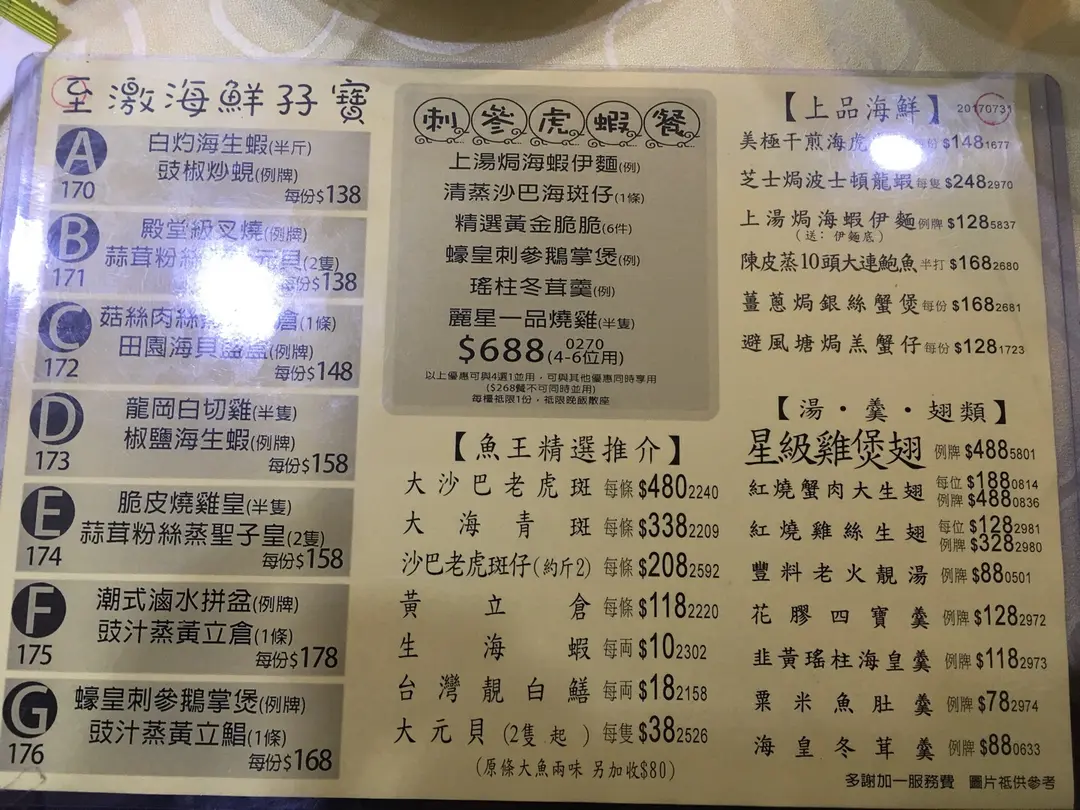 至激海鮮孖寶
A
170
白灼海生蝦(半斤)
豉椒炒蜆(例牌)
每份$138
B
171
殿堂級叉燒(例牌)
蒜茸粉絲 元貝(2隻)
每份$138
C
172
菇絲肉絲 倉(1條)
田園海貝 (例牌)
每份$148
D
173
龍岡白切雞(半隻)
椒鹽海生蝦(例牌)
每份$158
E
174
脆皮燒雞皇(半隻)
蒜茸粉絲蒸聖子皇(2隻)
每份$158
F
175
潮式滷水拼盆(例牌)
豉汁蒸黃立倉(1條)
每份$178
G
176
蠔皇刺參鵝掌煲(例牌)
豉汁蒸黃立鯧(1條)
每份$168
刺參虎蝦餐
上湯焗海蝦伊麵(例)
清蒸沙巴海斑仔(1條)
精選黃金脆脆(6件)
蠔皇刺參鵝掌煲(例)
瑤柱冬茸羹(例)
麗星一品燒雞(半隻)
$688 0270 (4-6位用)
以上優惠可與4選1並用，可與其他優惠同時享用
($268餐不可同時並用)
每檯祇限1份，祇限晚飯散座
【魚王精選推介】
大沙巴老虎斑 每條 $480 2240
大海青斑 每條 $338 2209
沙巴老虎斑仔(約斤2) 每條 $208 2592
黃立倉 每條 $118 2220
生海蝦 每両 $10 2302
台灣靚白鱔 每両 $18 2158
大元貝(2隻起) 每隻 $38 2526
(原條大魚兩味 另加收$80)
【上品海鮮】 20170731
美極干煎海虎 份 $148 1677
芝士焗波士頓龍蝦 每隻 $248 2970
上湯焗海蝦伊麵 例牌 $128 5837
(送：伊麵底)
陳皮蒸10頭大連鮑魚 半打 $168 2680
薑蔥焗銀絲蟹煲 每份 $168 2681
避風塘焗羔蟹仔 每份 $128 1723
【湯・羹・翅類】
星級雞煲翅 例牌 $488 5801
紅燒蟹肉大生翅 每位 $188 0814
例牌 $488 0836
紅燒雞絲生翅 每位 $128 2981
例牌 $328 2980
豐料老火靚湯 例牌 $88 0501
花膠四寶羹 例牌 $128 2972
韭黃瑤柱海皇羹 例牌 $118 2973
粟米魚肚羹 例牌 $78 2974
海皇冬茸羹 例牌 $88 0633
多謝加一服務費 圖片祇供參考